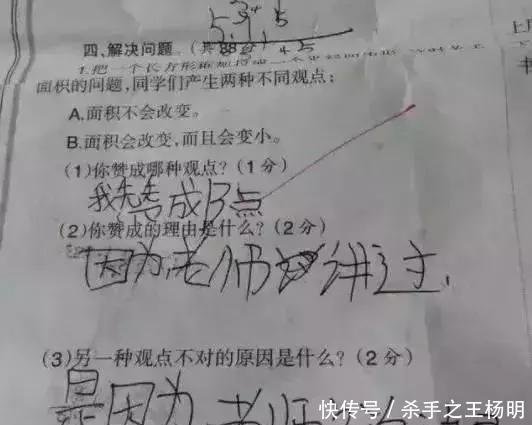 5.
3 4 5
4 5
四、解决问题。(共88分)
1.把一个长方形框架拉成一个
面积的问题,同学们产生两种不同观点:
A.面积不会改变。
B.面积会改变,而且会变小。
(1)你赞成哪种观点?(1分)
我赞成B点
(2)你赞成的理由是什么?(2分)
因为老师讲过.
(3)另一种观点不对的原因是什么?(2分)
是因为老师
快传号/杀手之王杨明